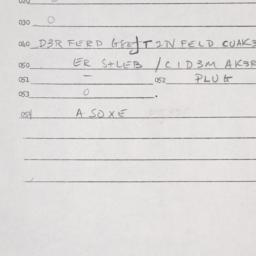 030 0
040 D3R FERD GEHT IN FELD CUAK3
050 ER STLEB / CID3M AK3R
051 – 052 PLUG
053 0 .
054 A SOXE